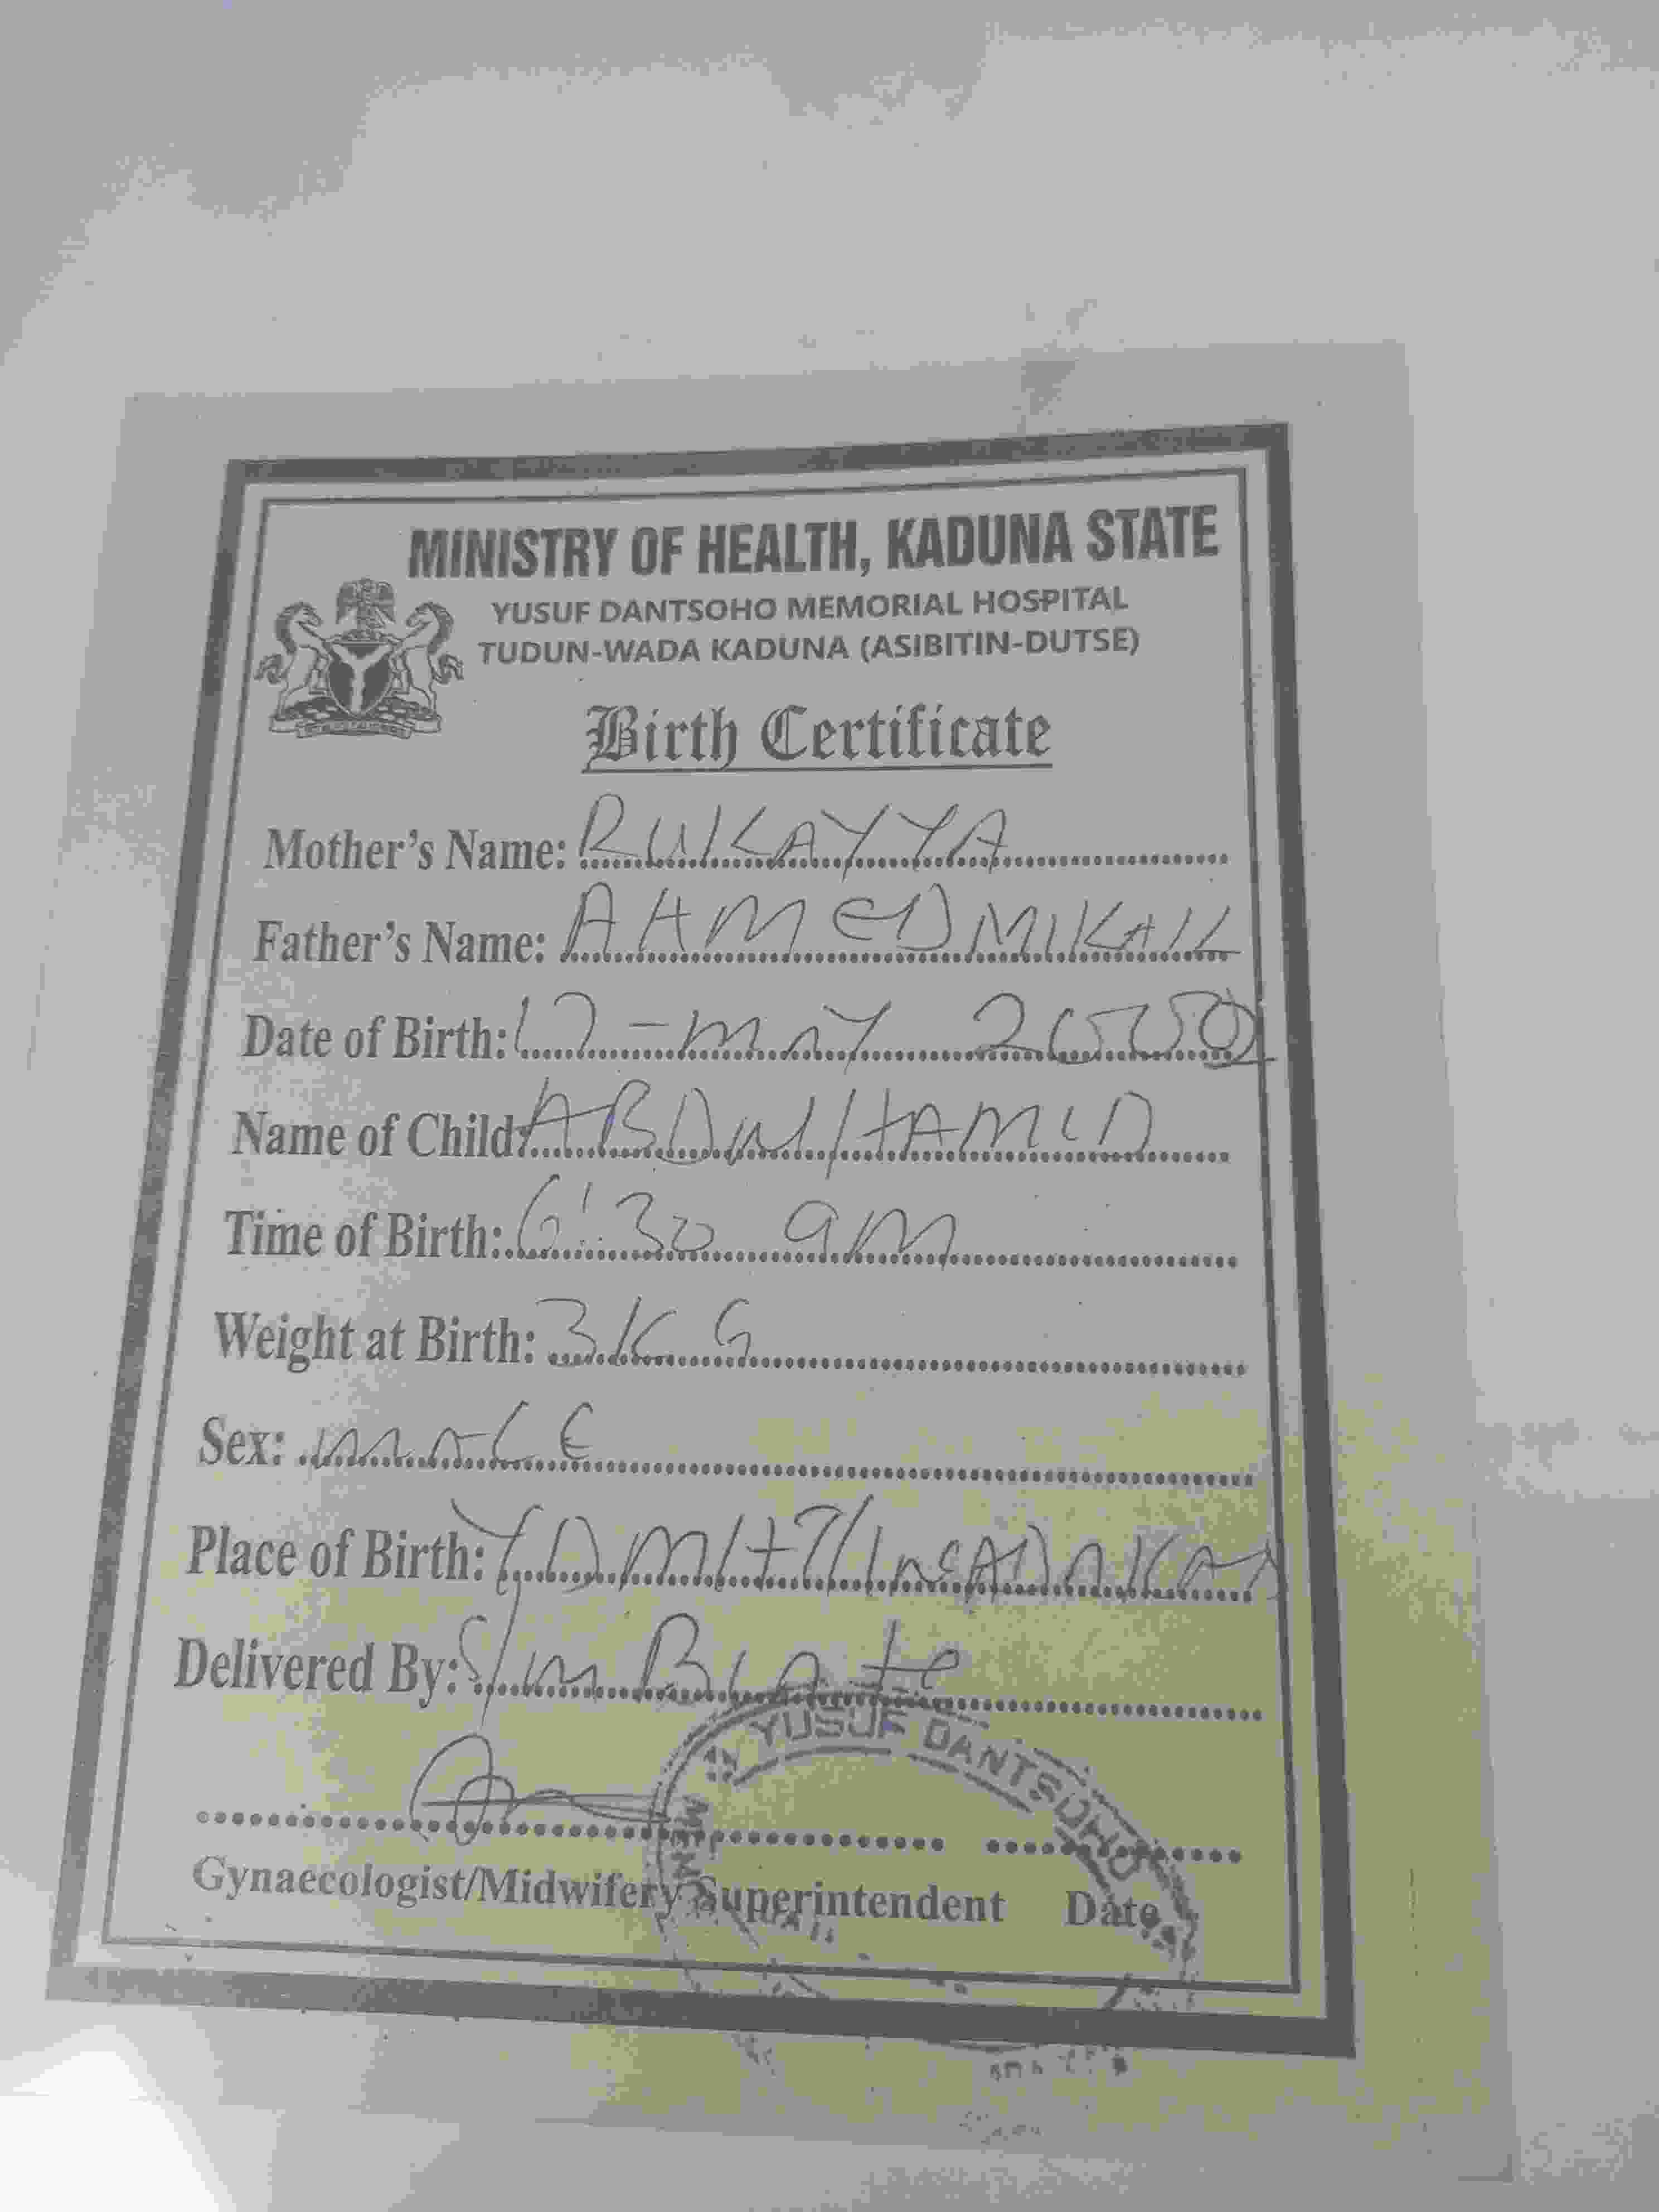 MINISTRY OF HEALTH, KADUNA STATE
YUSUF DANTSOHO MEMORIAL HOSPITAL
TUDUN-WADA KADUNA (ASIBITIN-DUTSE)
Birth Certificate
Mother's Name: RUKAYYA
Father's Name: AHMED MIKAIL
Date of Birth: 17-MAY
Name of Child: ABDULHAMID
Time of Birth: 6:30 am
Weight at Birth: 3KG
Sex: MALE
Place of Birth:
Delivered By: S/m
YUSUF DANTSOHO
Gynaecologist/Midwifery Superintendent Date